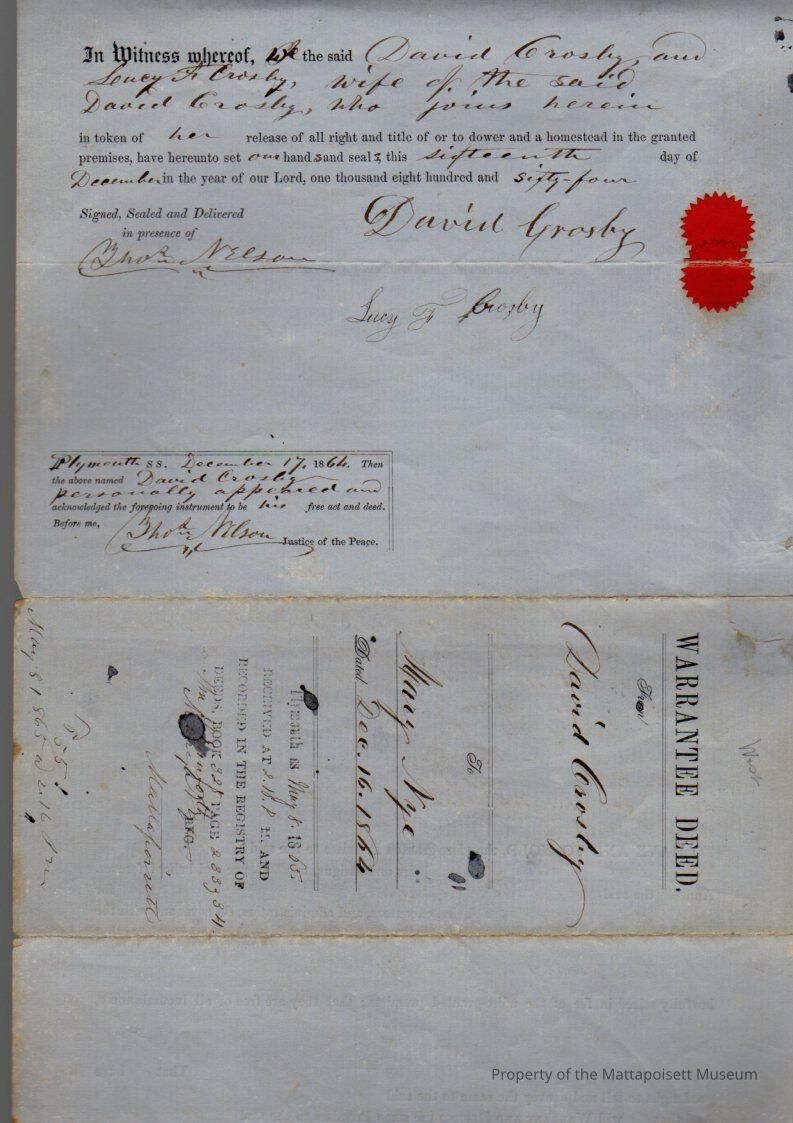 In Witness whereof, We the said David Crosby, and
Lucy F Crosby, wife of the said
David Crosby, who joins herein
in token of her release of all right and title of or to dower and a homestead in the granted
premises, have hereunto set our hands and seals, this sixteenth day of
December in the year of our Lord, one thousand eight hundred and sixty-four
Signed, Sealed and Delivered
in presence of
Thos. Nelson
David Crosby
Lucy F Crosby
Plymouth ss. December 17, 1864. Then
the above named David Crosby
personally appeared and
acknowledged the foregoing instrument to be his free act and deed.
Before me,
Thos. Nelson Justice of the Peace.
WARRANTEE DEED.
From
David Crosby
To
Mary Nye
Dated Dec. 16. 1864
Plymouth ss May 8. 1865.
RECEIVED AT 2 P. M. AND
RECORDED IN THE REGISTRY OF
DEEDS, BOOK PAGE
REG.
Mattapoisett
May 8 1865 a 2. 16 Pm
West
Property of the Mattapoisett Museum